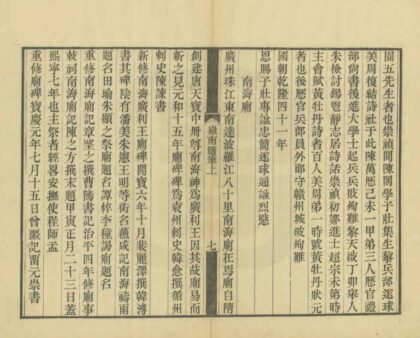 園五先生者也崇禎間陳閣學子壯集生黎兵部遂球
美周復結詩社于此陳萬歷己未一甲第三人歷官禮
部尚書後進大學士起兵敗殉難黎天啟丁卯舉人
朱檢討錫鬯靜志居詩話崇禎初鄒進士超宗未第時
主會賦黃牡丹詩者百人美周第一時號黃牡丹狀元
者也後歷官兵部員外郎守贛州城破殉難
國朝乾隆四十一年
恩賜子壯專謚忠簡遂球通謚烈愍
南海廟
廣州珠江東南達波羅江八十里南海廟在焉廟自隋
嶺南隨筆上
七
創建唐天寶中冊尊南海神爲廣利王因其故廟易而
新之見元和十五年廟碑碑爲廣州刺史韓愈撰循州
刺史陳諫書
新修南海廣利王廟碑開寶六年十月裴麗澤撰韓溥
書其碑陰有潘美朱憲王明等銜名蘇咸記南海禱雨
題名田瑜朱顯之祭廟題名譚粹李種謁廟題名
重修南海廟記章望之撰曹書記治平四年修廟事
敕祠南海廟記陳之方撰末題甲寅正月二十三日蓋
熙寧七年也主祭者經畧安撫使程師孟
重修廟碑寶慶元年七月十五日曾噩記賈元崇書